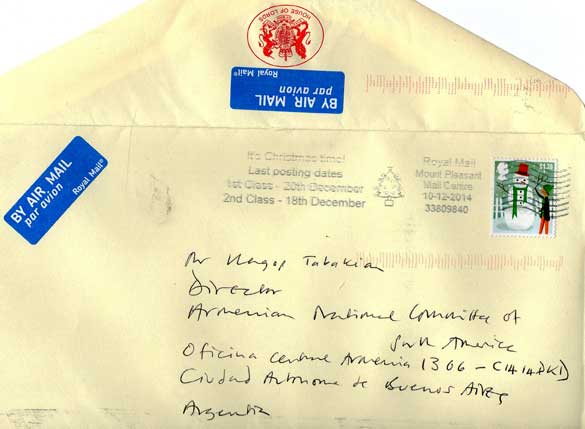 HOUSE OF LORDS
BY AIR MAIL
par avion
Royal Mail®
BY AIR MAIL
par avion
Royal Mail®
It's Christmas time!
Last posting dates
1st Class - 20th December
2nd Class - 18th December
Royal Mail
Mount Pleasant
Mail Centre
10-12-2014
33809840
Mr Hagop Tabakian
Director
Armenian National Committee of
South America
Oficina Centrale Armenia 1306 - C1414DKD
Ciudad Autonoma de Buenos Aires
Argentina